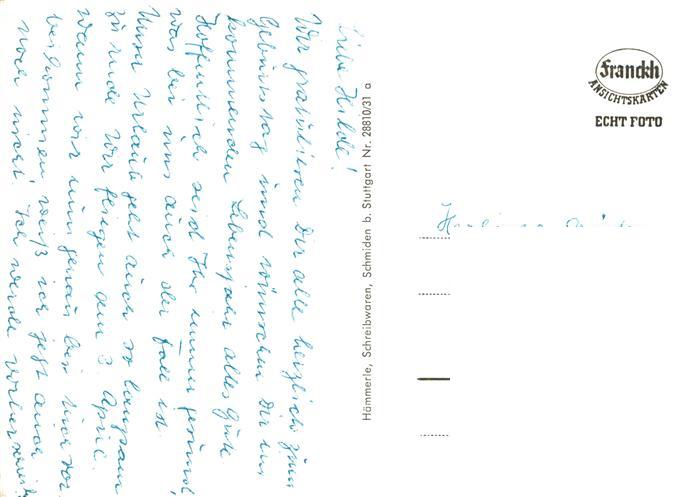 Liebe Hilde!
Wir gratulieren Dir alle herzlich zum
Geburtstag und wünschen Dir im
kommenden Lebensjahr alles Gute
Hoffentlich seid Ihr immer gesund,
was bei uns auch der Fall ist.
Unser Urlaub geht auch so langsam
zu Ende Wir fliegen am 3. April.
Wann wir nun genau bei Euch vor-
beikommen, weiß ich jetzt auch
noch nicht. Ich werde vorher
Hämmerle, Schreibwaren, Schmiden b. Stuttgart Nr. 28810/31 a
Franckh
ANSICHTSKARTEN
ECHT FOTO